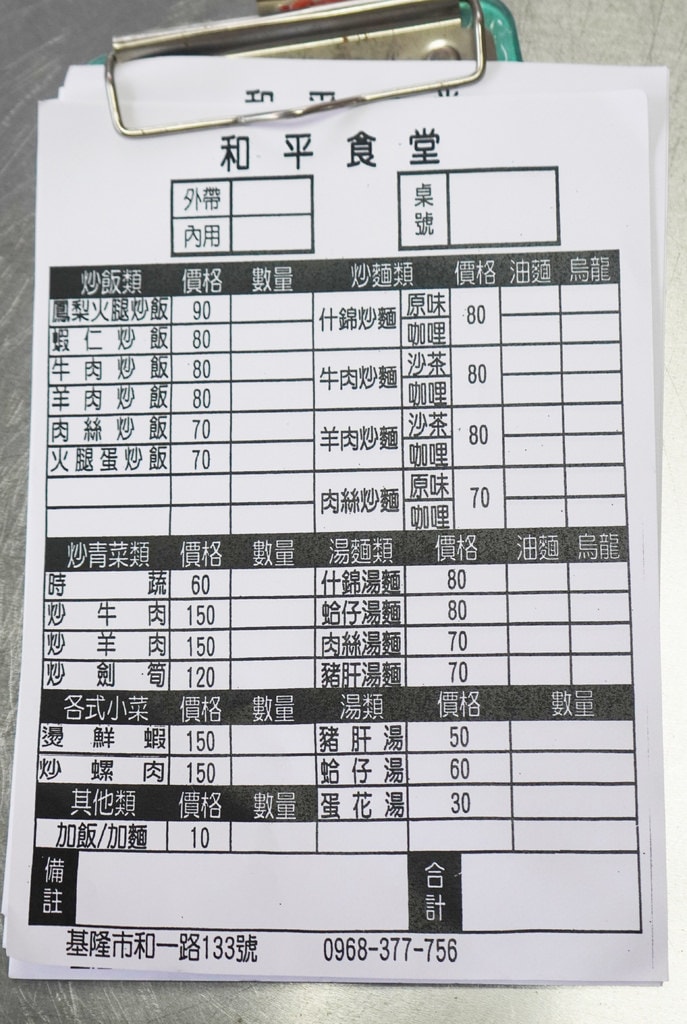 和平食堂
外帶 桌號
內用
炒飯類 價格 數量 炒麵類 價格 油麵 烏龍
鳳梨火腿炒飯 90 什錦炒麵 原味 80
蝦仁炒飯 80 咖哩
牛肉炒飯 80 牛肉炒麵 沙茶 80
羊肉炒飯 80 咖哩
肉絲炒飯 70 羊肉炒麵 沙茶 80
火腿蛋炒飯 70 咖哩
肉絲炒麵 原味 70
咖哩
炒青菜類 價格 數量 湯麵類 價格 油麵 烏龍
時蔬 60 什錦湯麵 80
炒牛肉 150 蛤仔湯麵 80
炒羊肉 150 肉絲湯麵 70
炒劍筍 120 豬肝湯麵 70
各式小菜 價格 數量 湯類 價格 數量
燙鮮蝦 150 豬肝湯 50
炒螺肉 150 蛤仔湯 60
其他類 價格 數量 蛋花湯 30
加飯/加麵 10
備註 合計
基隆市和一路133號 0968-377-756